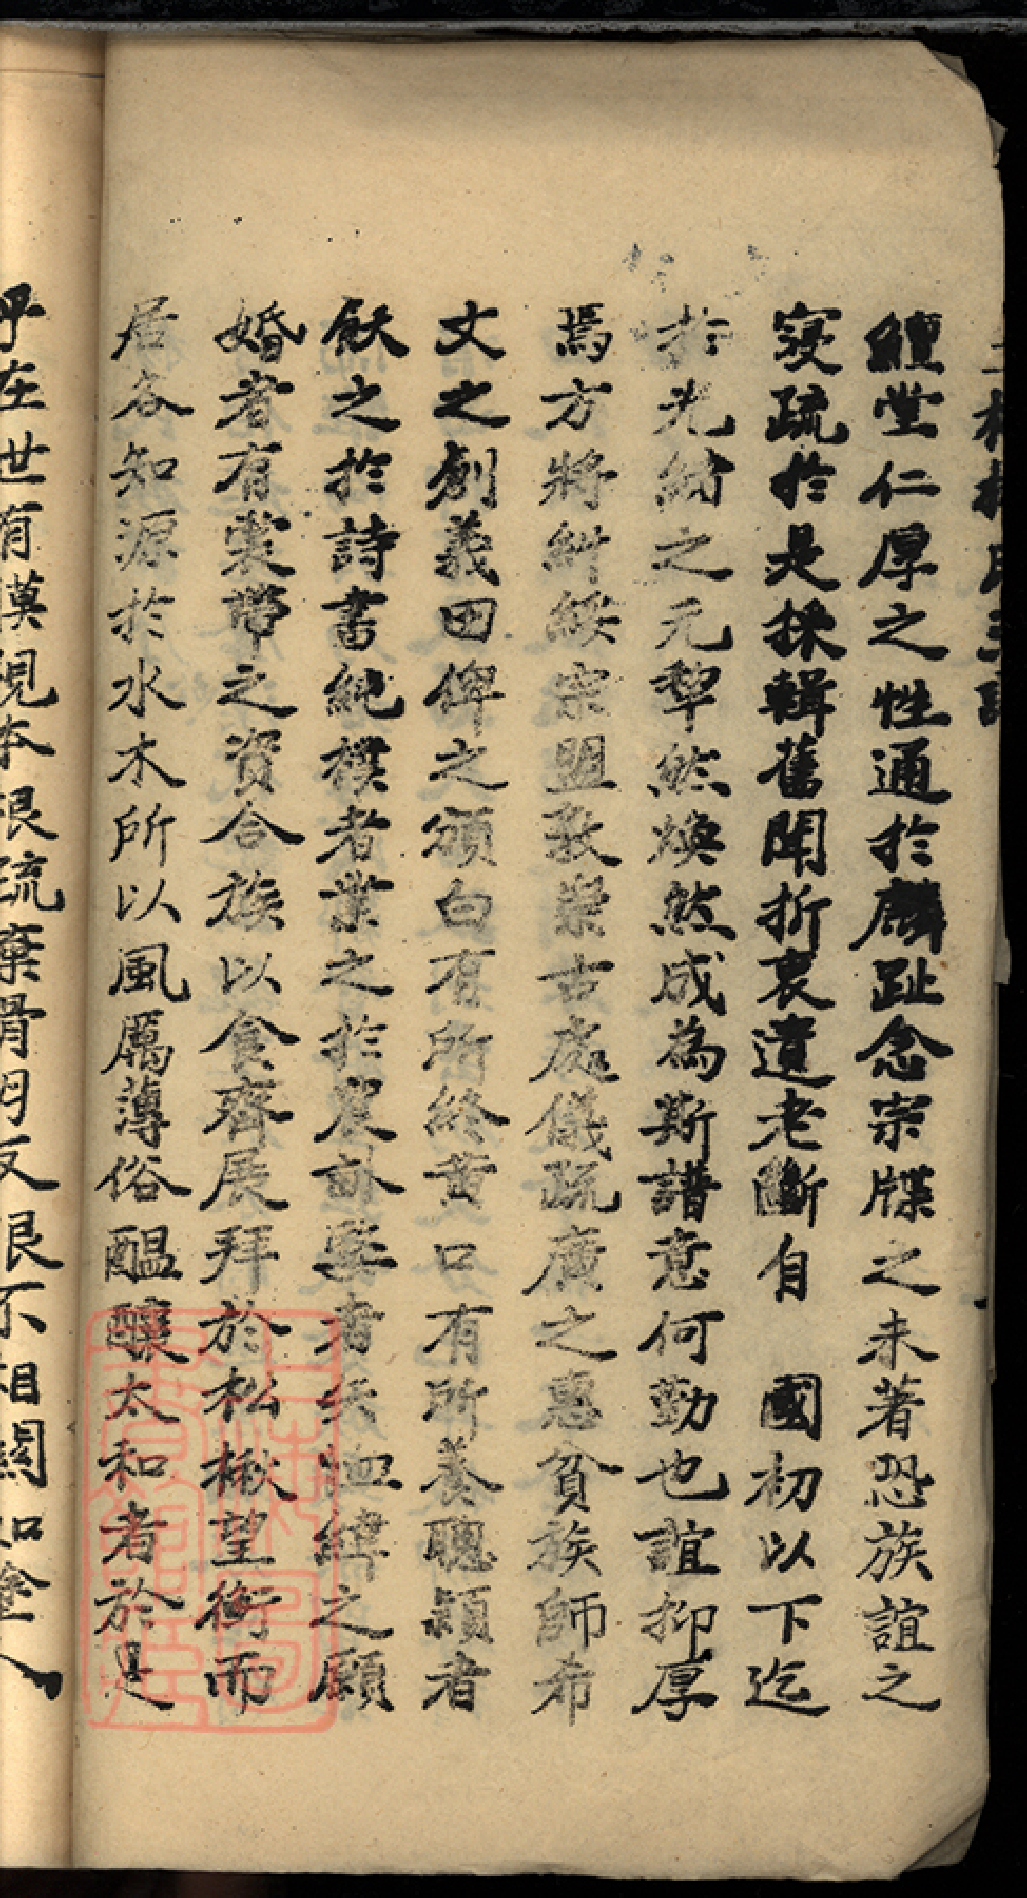 鱣堂仁厚之性通於麟趾念宗牒之未著恐族誼之
寖疏於是採輯舊聞折衷遺老斷自　國初以下迄
於光緒之元犂然煥然成為斯譜意何勤也誼抑厚
焉方將紏綏宗盟敦崇古處儀疏廣之惠貧族師希
文之創義田俾之頒白有所終黃口有所養聰穎者
飫之於詩書純樸者業之於農畝嫠者失恤緯之顧
婚者有裳帶之資合族以食齊展拜於松楸望衡而
居各知源於水木所以風厲薄俗醞釀太和者於是
乎在世有漠視本根疏棄骨肉反眼不相關如塗人